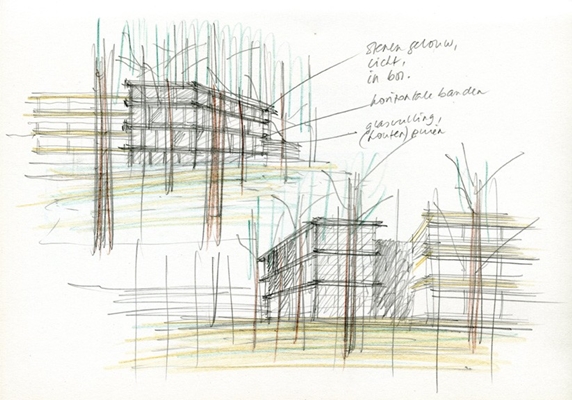 stenen gebouw,
licht,
in bos.
horizontale banden
glasvulling,
(houten) puien